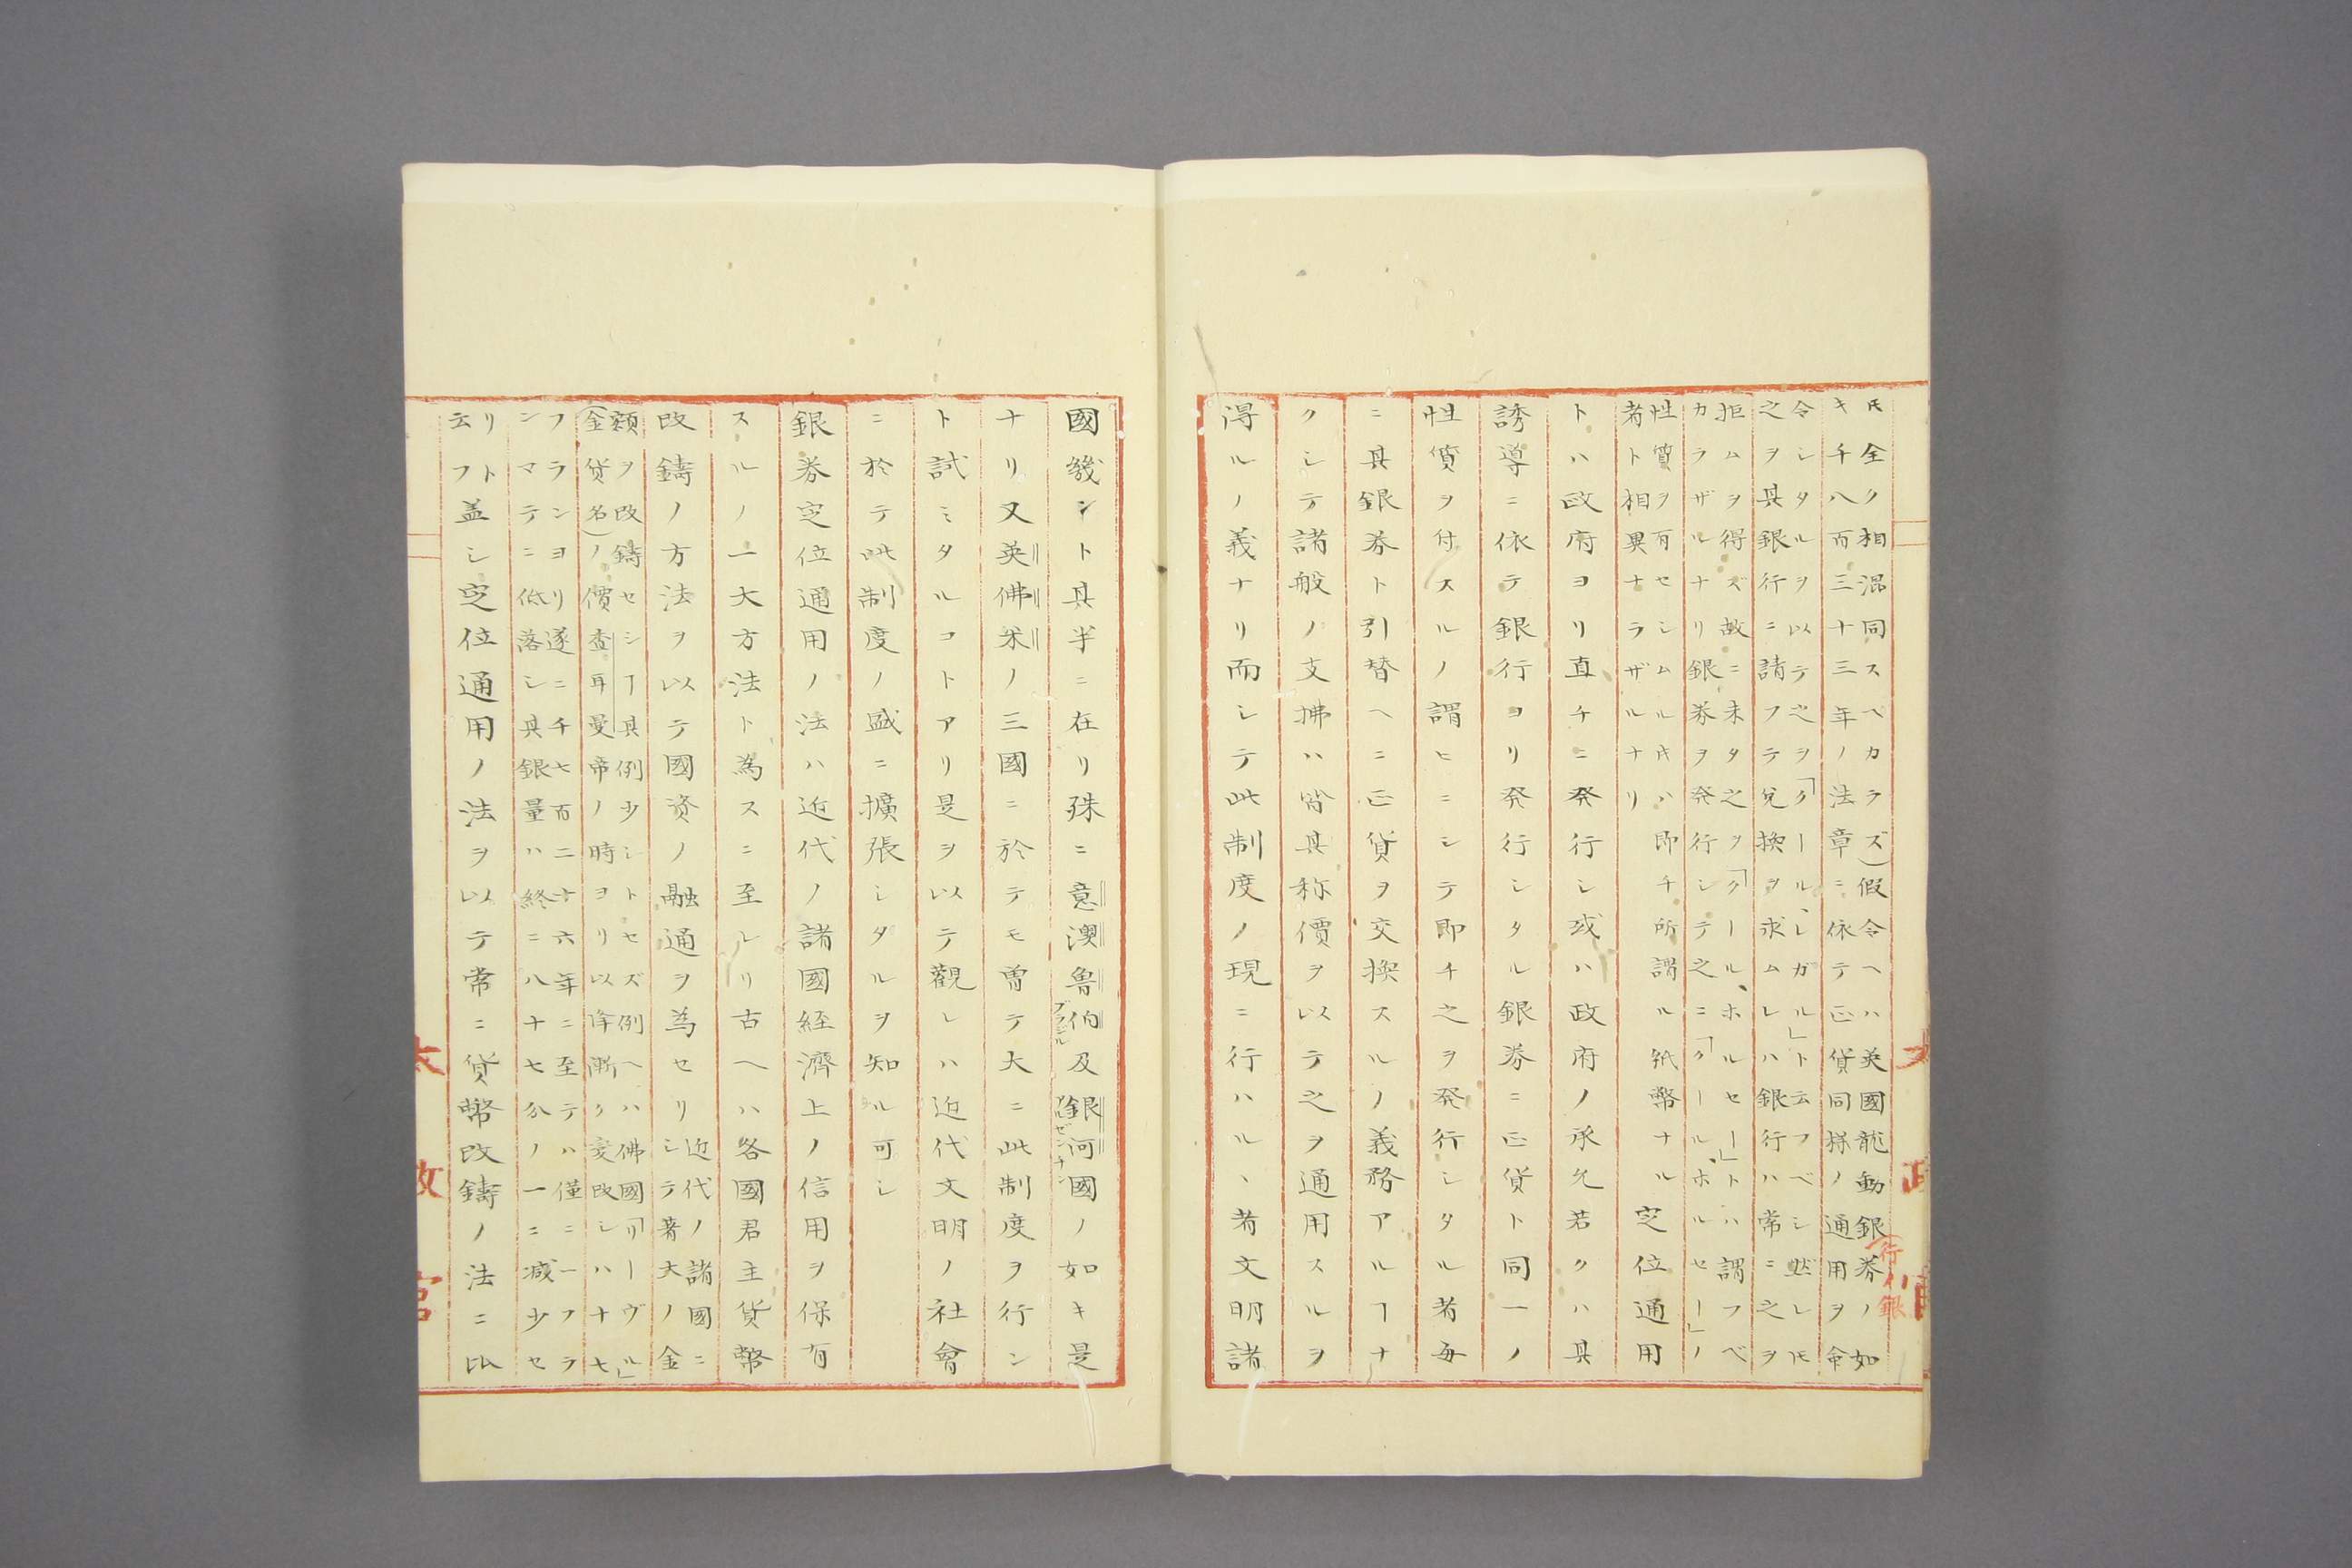 𪜈全ク相混同スヘカラズ)假令ヘハ英國龍動銀券ノ如
(行銀
キ千八百三十三年ノ法章ニ依テ正貨同様ノ通用ヲ命
令シタルヲ以テ之ヲ「クールヽレガル」ト云フベシ然レ𪜈
之ヲ其銀行ニ請フテ兌換ヲ求ムレハ銀行ハ常ニ之ヲ
拒ムヲ得ズ故ニ未タ之ヲ「クール、ホルセー」トハ謂フベ
カラザルナリ銀券ヲ発行シテ之ニ「クール、ホルセー」ノ
性質ヲ有セシムル𪜈ハ即チ所謂ル紙幣ナル
者ト相異ナラザルナリ
定位通用
トハ政府ヨリ直チニ発行シ或ハ政府ノ承允若クハ其
誘導ニ依テ銀行ヨリ発行シタル銀券ニ正貨ト同一ノ
性質ヲ付スルノ謂ヒニシテ即チ之ヲ発行シタル者毎
ニ其銀券ト引替ヘニ正貨ヲ交換スルノ義務アルヿナ
クシテ諸般ノ支拂ハ皆其称價ヲ以テ之ヲ通用スルヲ
得ルノ義ナリ而シテ此制度ノ現ニ行ハルヽ者文明諸
國幾ント其半ニ在リ殊ニ意澳魯伯及銀河國ノ如キ是
ブラジル
アルゼンチナン
ナリ又英佛米ノ三國ニ於テモ曽テ大ニ此制度ヲ行ン
ト試ミタルコトアリ是ヲ以テ觀レハ近代文明ノ社會
ニ於テ此制度ノ盛ニ擴張シタルヲ知ル可シ
銀券定位通用ノ法ハ近代ノ諸國経濟上ノ信用ヲ保有
スルノ一大方法ト為スニ至レリ古ヘハ各國君主貨幣
改鋳ノ方法ヲ以テ國資ノ融通ヲ為セリ
近代ノ諸國ニ
シテ著大ノ金
額ヲ改鋳セシヿ其例少シトセズ例ヘハ佛國「リーヴル」
(金貨名)ノ價査耳曼帝ノ時ヨリ以降漸ク変改シハ十七
フランヨリ遂ニ千七百二十六年ニ至テハ僅ニ一フラ
ンマテニ低落シ其銀量ハ終ニ八十七分ノ一ニ減少セ
リト
云フ
盖シ定位通用ノ法ヲ以テ常ニ貨幣改鋳ノ法ニ比
太政官